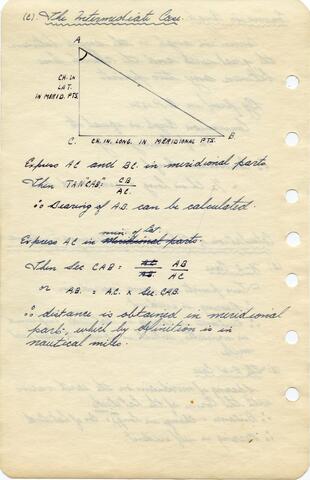 (c). The Intermediate Case.
A
CH. IN
LAT.
IN MERID. PTS.
C. CH. IN. LONG. IN MERIDIONAL PTS. B
Express AC and BC. in meridional parts
Then TAN "CAB" = CB
AC.
∴ Bearing of AB. can be calculated.
min. of lat.
Express AC in meridional parts.
Then Sec CAB = AC AB
AB. AC
or AB. = AC. x Sec CAB.
∴ distance is obtained in meridional
parts, which by definition is in
nautical miles.